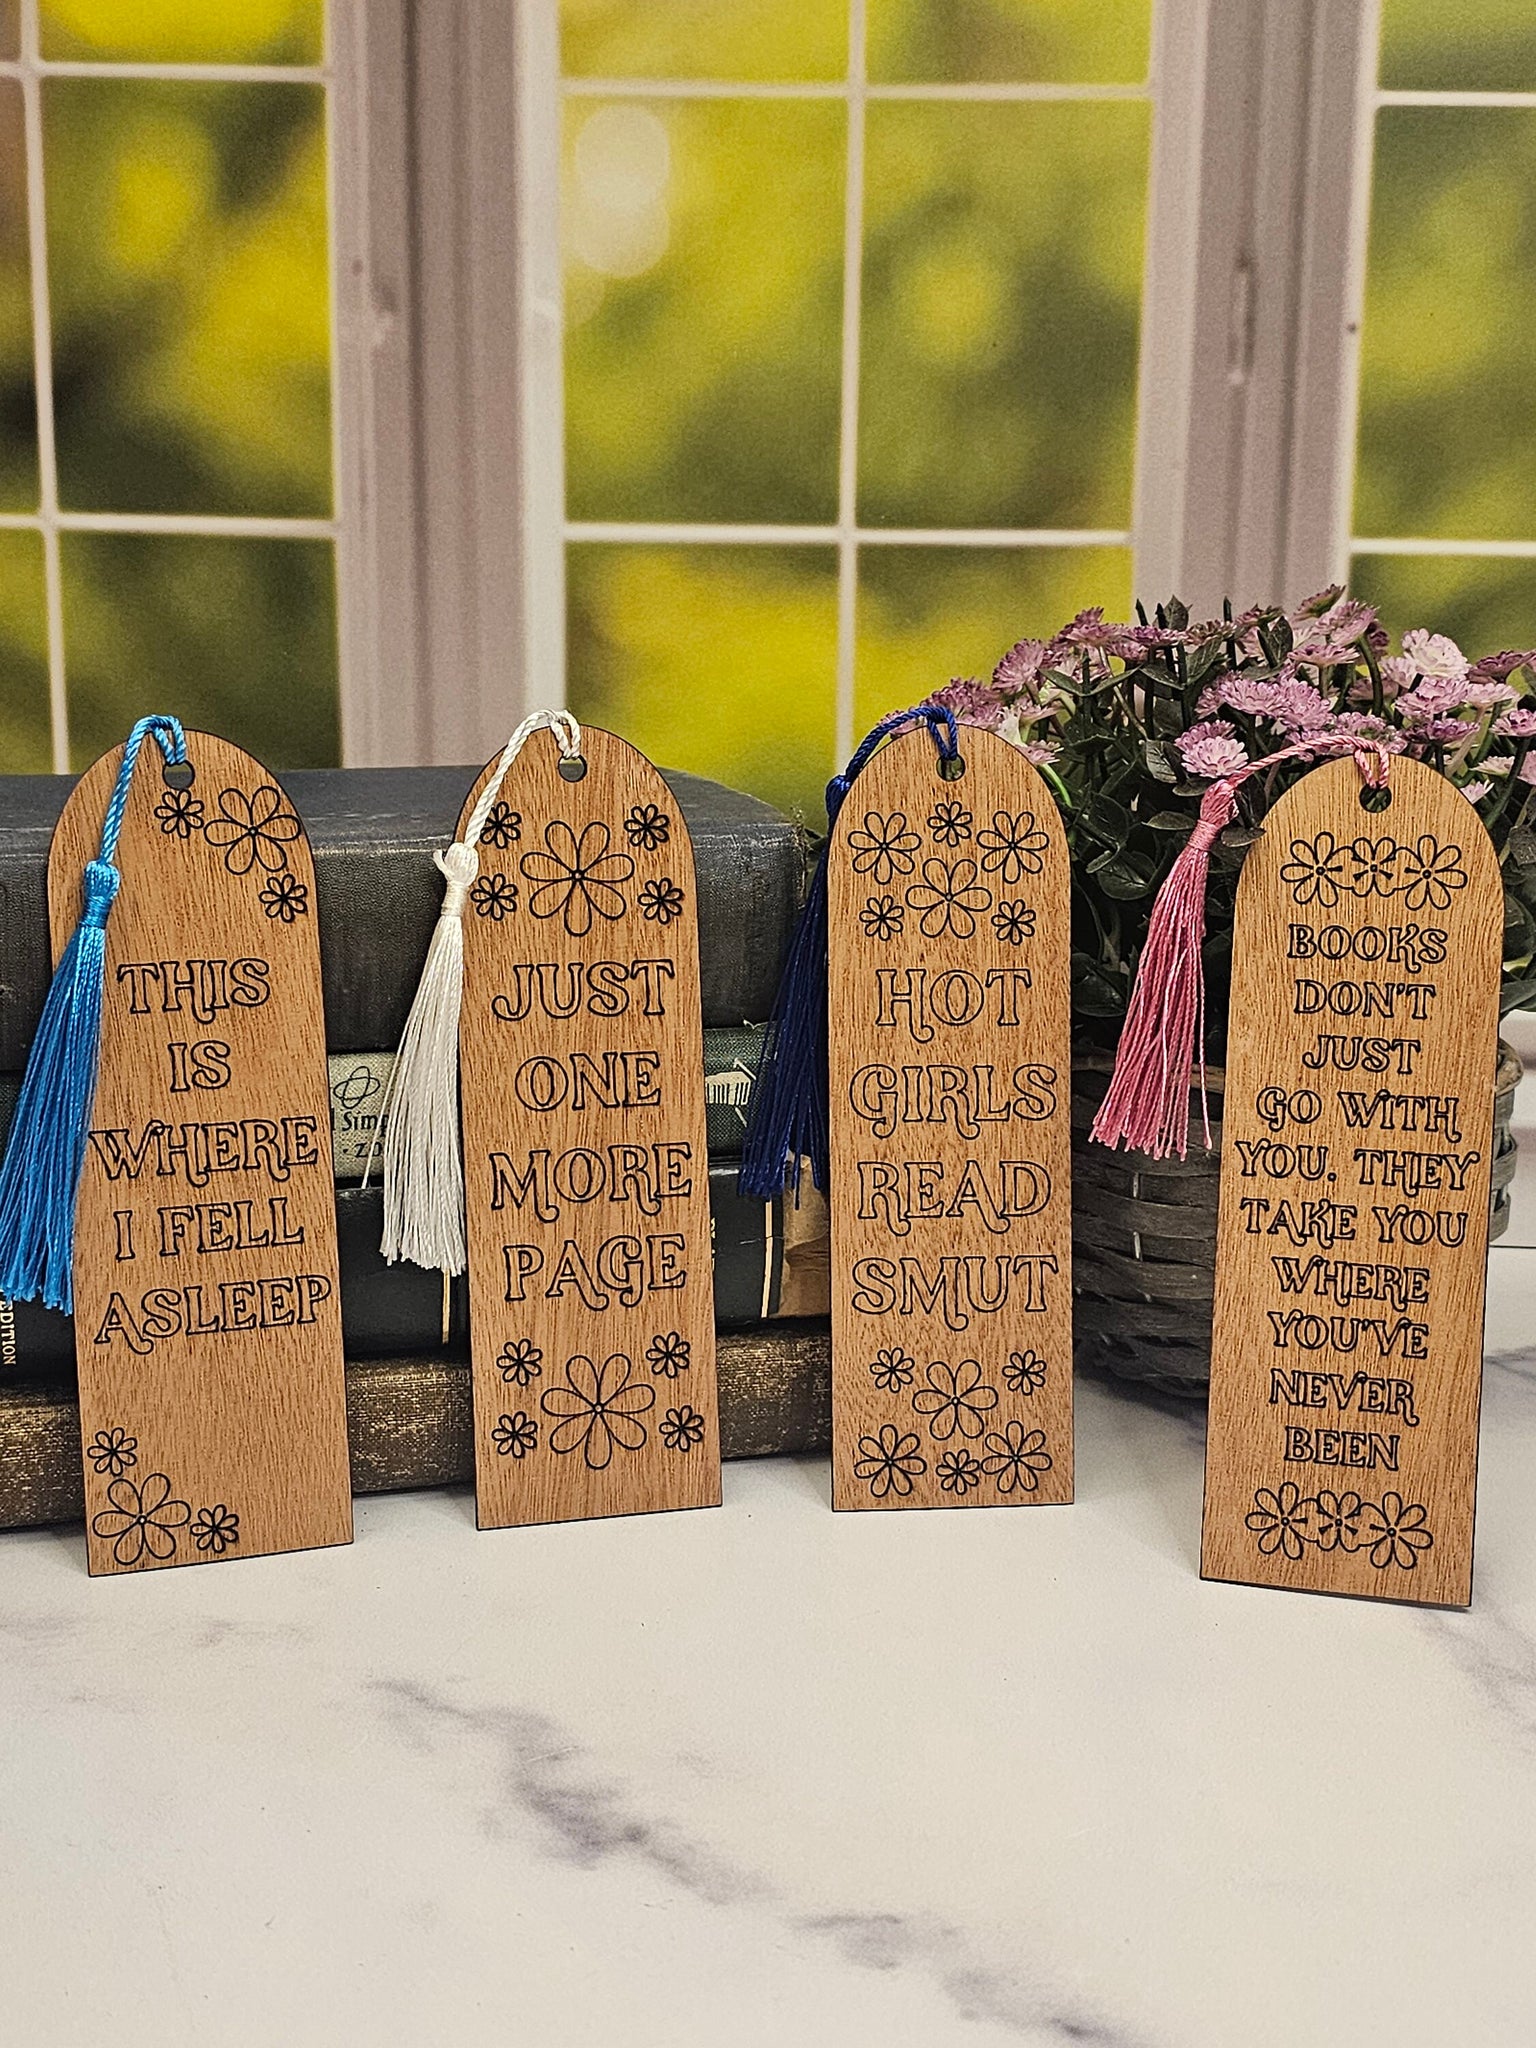 THIS
IS
WHERE
I FELL
ASLEEP
JUST
ONE
MORE
PAGE
HOT
GIRLS
READ
SMUT
BOOKS
DON'T
JUST
GO WITH
YOU. THEY
TAKE YOU
WHERE
YOU'VE
NEVER
BEEN
EDITION